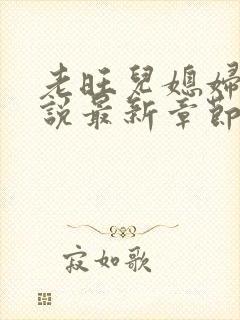 老旺兒媳婦
說最新章節
寂如歌